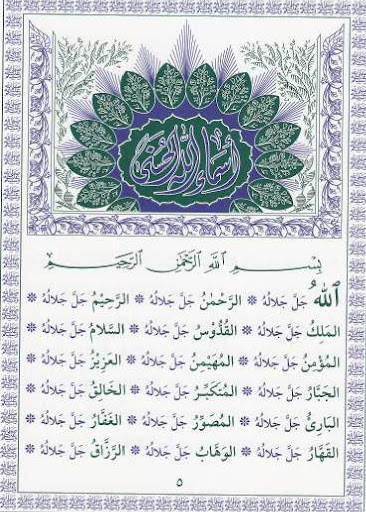 أسماء الله الحسنى
بِسْمِ اللَّهِ الرَّحْمٰنِ الرَّحِيمِ
اَللّٰهُ جَلَّ جَلَالُهُ * الرَّحْمٰنُ جَلَّ جَلَالُهُ * الرَّحِيْمُ جَلَّ جَلَالُهُ *
المَلِكُ جَلَّ جَلَالُهُ * القُدُّوْسُ جَلَّ جَلَالُهُ * السَّلَامُ جَلَّ جَلَالُهُ *
المُؤْمِنُ جَلَّ جَلَالُهُ * المُهَيْمِنُ جَلَّ جَلَالُهُ * العَزِيْزُ جَلَّ جَلَالُهُ *
الجَبَّارُ جَلَّ جَلَالُهُ * المُتَكَبِّرُ جَلَّ جَلَالُهُ * الخَالِقُ جَلَّ جَلَالُهُ *
البَارِئُ جَلَّ جَلَالُهُ * المُصَوِّرُ جَلَّ جَلَالُهُ * الغَفَّارُ جَلَّ جَلَالُهُ *
القَهَّارُ جَلَّ جَلَالُهُ * الوَهَّابُ جَلَّ جَلَالُهُ * الرَّزَّاقُ جَلَّ جَلَالُهُ *
٥